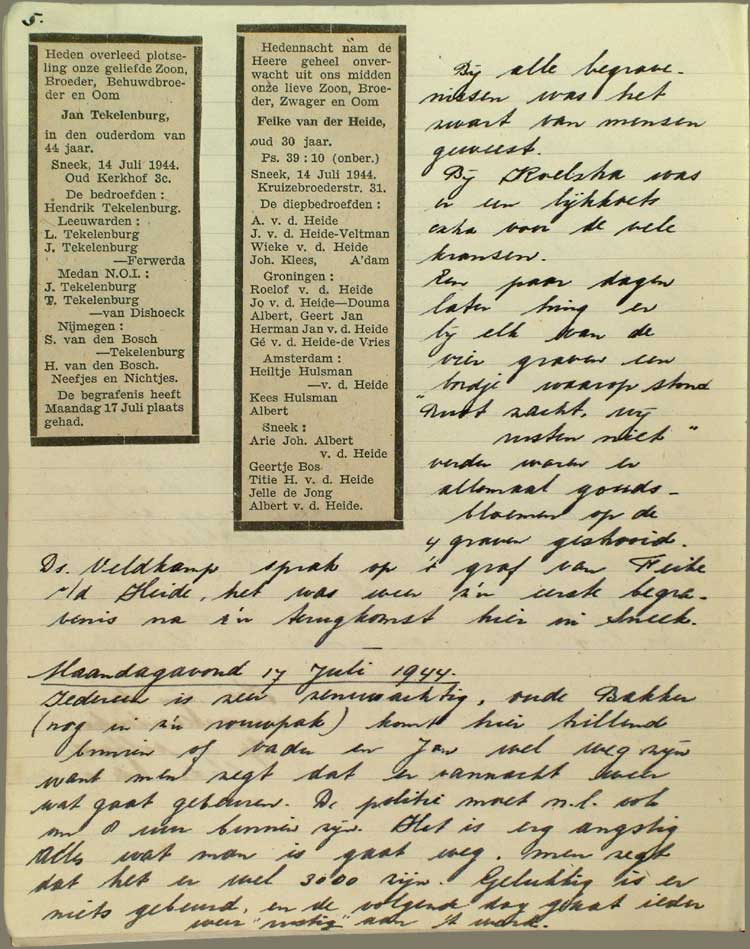 5.
Heden overleed plotse-
ling onze geliefde Zoon,
Broeder, Behuwdbroe-
der en Oom
Jan Tekelenburg,
in den ouderdom van
44 jaar.
Sneek, 14 Juli 1944.
Oud Kerkhof 3c.
De bedroefden :
Hendrik Tekelenburg.
Leeuwarden :
L. Tekelenburg
J. Tekelenburg
—Ferwerda
Medan N.O.I. :
J. Tekelenburg
T. Tekelenburg
—van Dishoeck
Nijmegen :
S. van den Bosch
—Tekelenburg
H. van den Bosch.
Neefjes en Nichtjes.
De begrafenis heeft
Maandag 17 Juli plaats
gehad.
Hedennacht nam de
Heere geheel onver-
wacht uit ons midden
onze lieve Zoon, Broe-
der, Zwager en Oom
Feike van der Heide,
oud 30 jaar.
Ps. 39 : 10 (onber.)
Sneek, 14 Juli 1944.
Kruizebroederstr. 31.
De diepbedroefden :
A. v. d. Heide
J. v. d. Heide-Veltman
Wieke v. d. Heide
Joh. Klees, A'dam
Groningen :
Roelof v. d. Heide
Jo v. d. Heide—Douma
Albert, Geert Jan
Herman Jan v. d. Heide
Gé v. d. Heide-de Vries
Amsterdam :
Heiltje Hulsman
—v. d. Heide
Kees Hulsman
Albert
Sneek :
Arie Joh. Albert
v. d. Heide
Geertje Bos
Titie H. v. d. Heide
Jelle de Jong
Albert v. d. Heide.
Bij alle begrave-
nissen was het
zwart van mensen
geweest.
Bij was
er een lijkkoets
extra voor de vele
kransen.
Een paar dagen
later hing er
bij elk van de
vier graven een
bordje waarop stond
"Rust zacht, wij
rusten niet"
verder waren er
allemaal gouds-
bloemen op de
4 graven gestrooid.
Ds. Veldkamp sprak op 't graf van Feike
v/d Heide, het was weer z'n eerste begra-
venis na z'n terugkomst hier in Sneek.
Maandagavond 17 Juli 1944.
Iedereen is zeer zenuwachtig, oude Bakker
(nog in z'n rouwpak) komt hier trillend
binnen of vader en Jan wel weg zijn
want men zegt dat er vannacht weer
wat gaat gebeuren. De politie moet n.l. ook
om 8 uur binnen zijn. Het is erg angstig
alles wat man is gaat weg. Men zegt
dat het er wel 3000 zijn. Gelukkig is er
niets gebeurd, en de volgende dag gaat ieder
weer "rustig" aan 't werk.